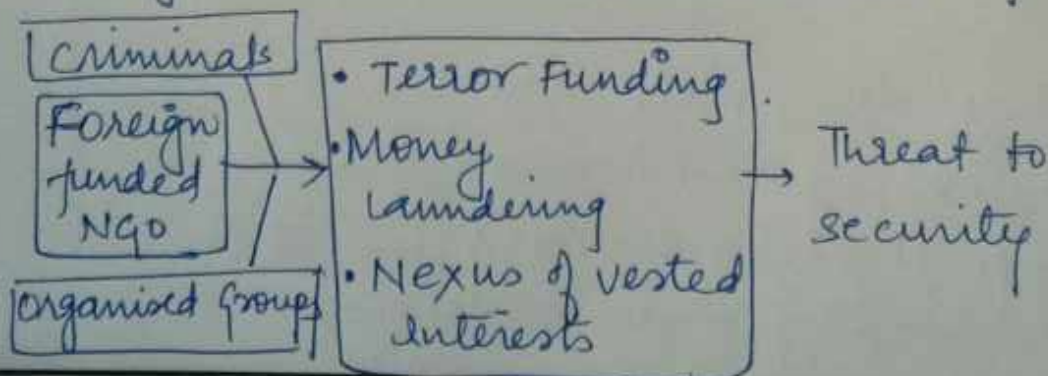 Criminals
Foreign
funded
NGO
Organised Groups
• Terror Funding
• Money
Laundering
• Nexus of vested
Interests
Threat to
security